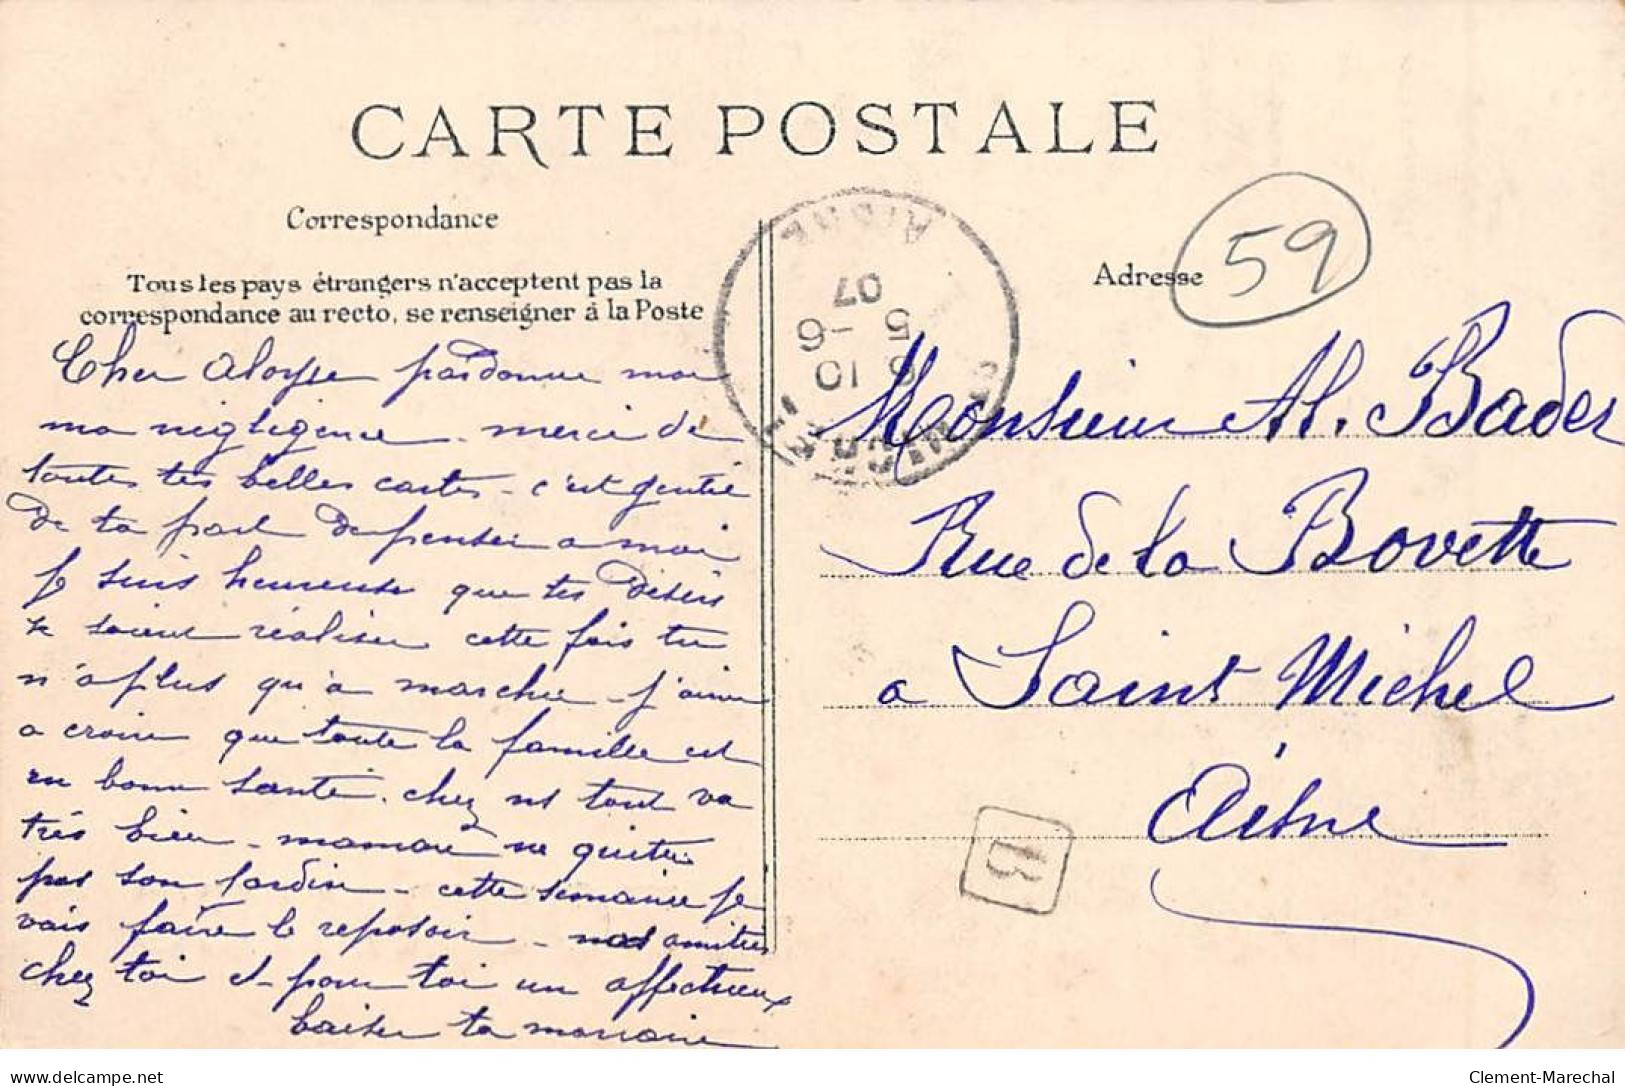 CARTE POSTALE
Correspondance
Tous les pays étrangers n'acceptent pas la
correspondance au recto, se renseigner à la Poste
Cher Aloyse pardonne moi
ma négligence - merci de
toutes tes belles cartes - c'est gentil
de ta part de penser a moi
Je suis heureuse que tes désirs
se soient réaliser cette fois tu
n'a plus qu'a marcher - j'aime
a croire que toute la famille est
en bonne santé. chez ns tout va
très bien - maman ne quitte
pas son jardin - cette semaine je
vais faire le reposoir - nos amitiés
chez toi et pour toi un affectueux
baiser ta marraine
Adresse
59
Monsieur Al. Bader
Rue de la Bovette
a Saint Michel
Aisne
AISNE
07
5 -6
10
B
delcampe.net
Clement-Marechal